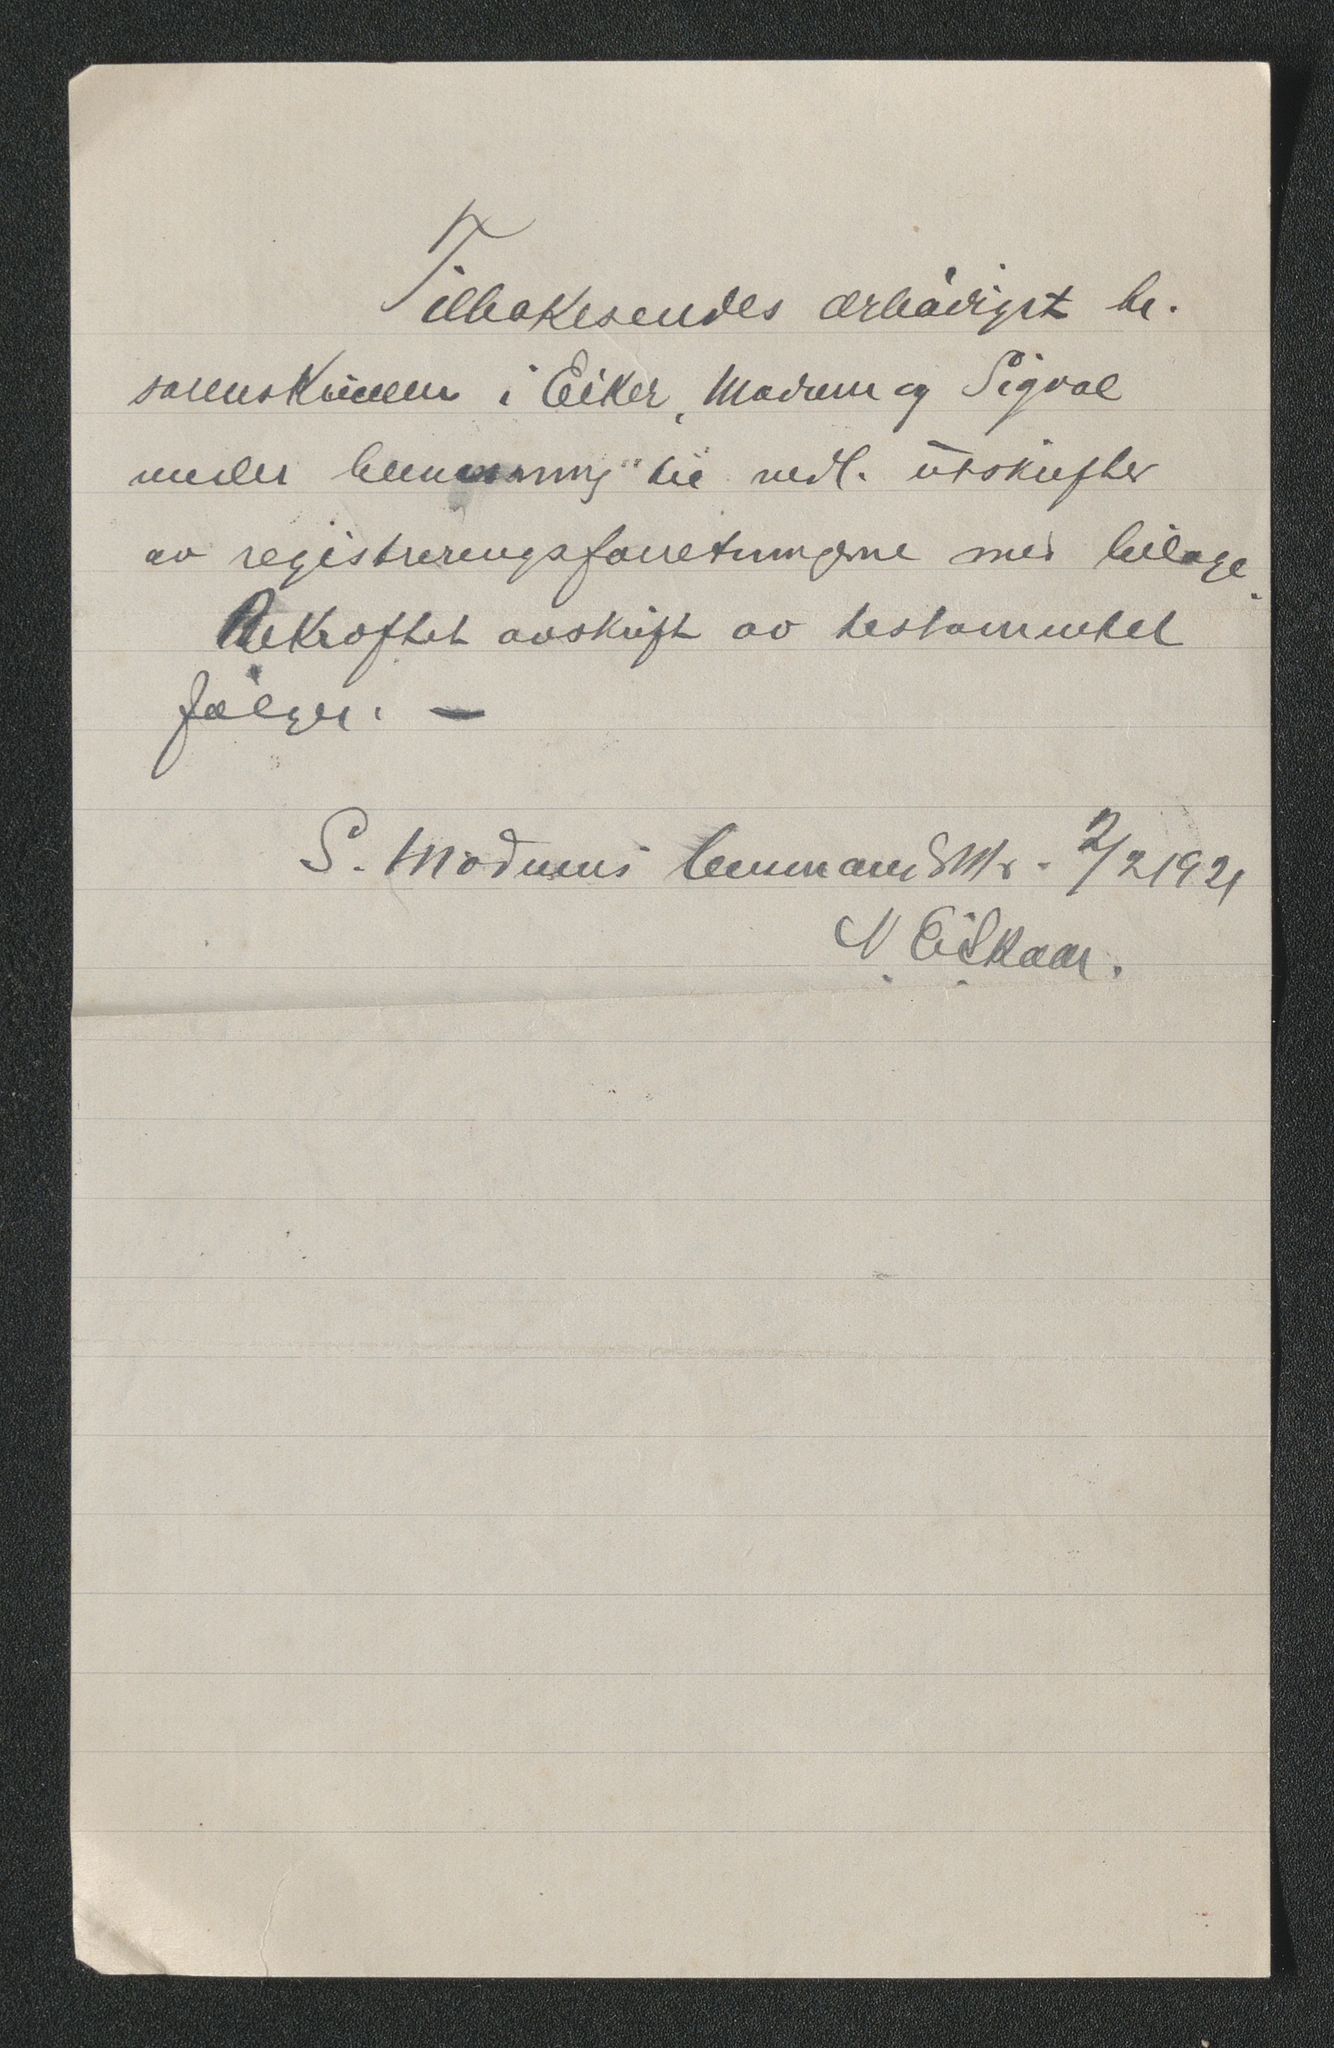 Tilbakesendes ærbødigst hr.
sorenskriveren i Eiker, Modum og Sigdal
under henvisning til vedl. utskrifter
av registreringsforretningerne med bilage.
Bekræftet avskrift av testamentet
følger. —
S. Modums lensmansktr. 2/2 1921
N. Eidkaar.